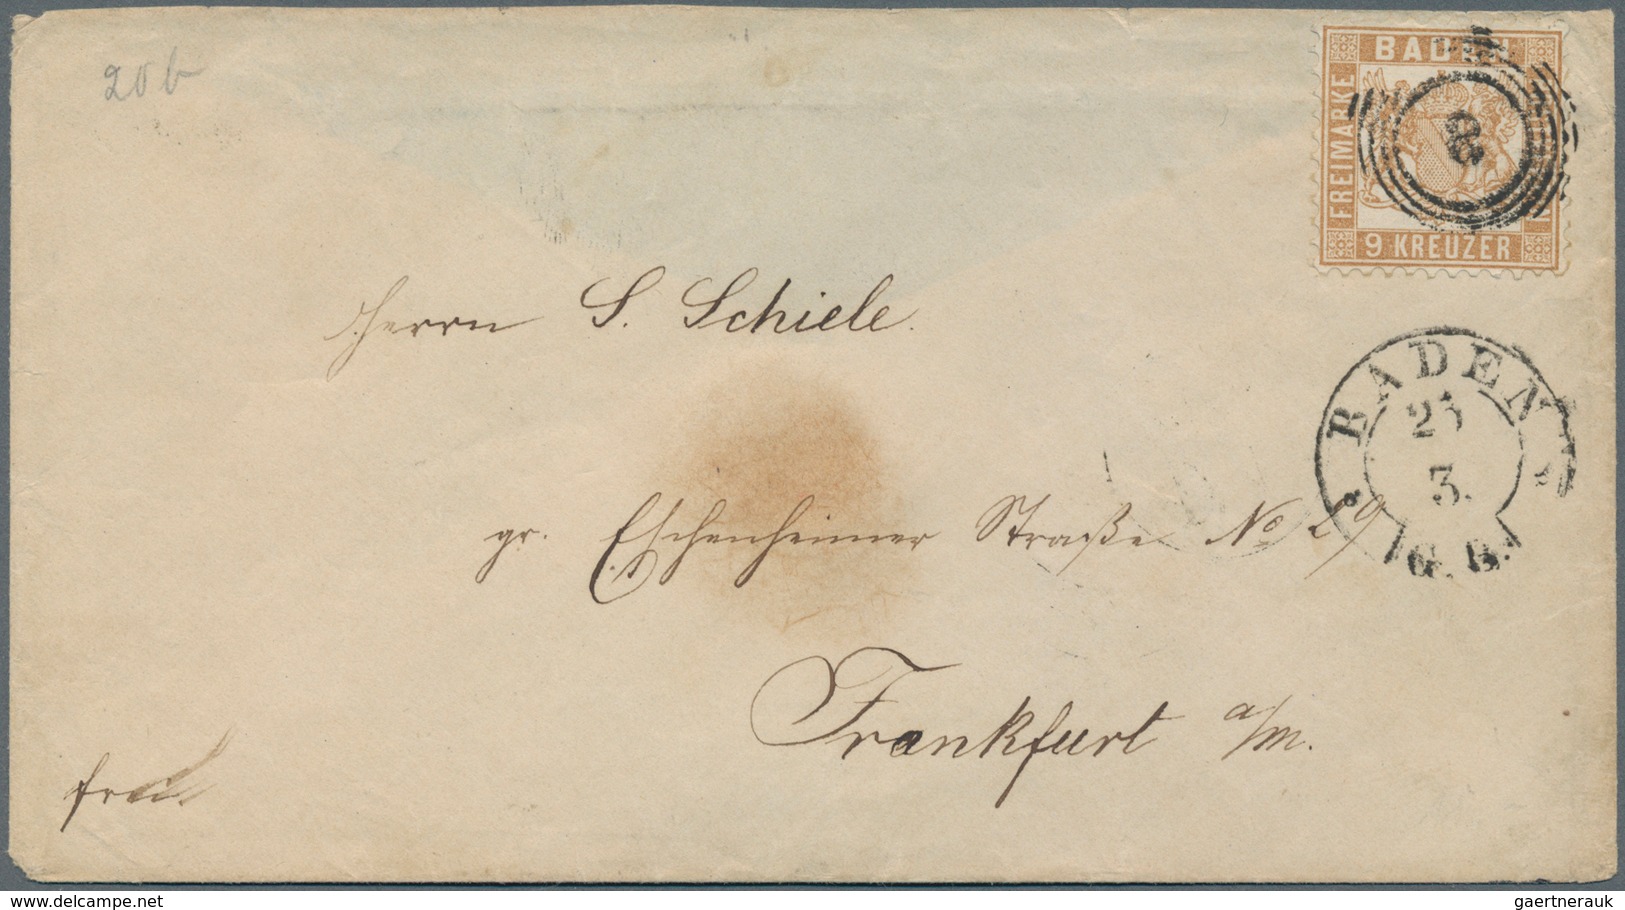 20b
BADEN
FREIMARKE
9 KREUZER
8
Herrn S. Schiele.
BADEN
25
3.
G. B.
gr. Eschenheimer Straße No 29
Frankfurt a/m.
frei
delcampe.net
gaertnerauk